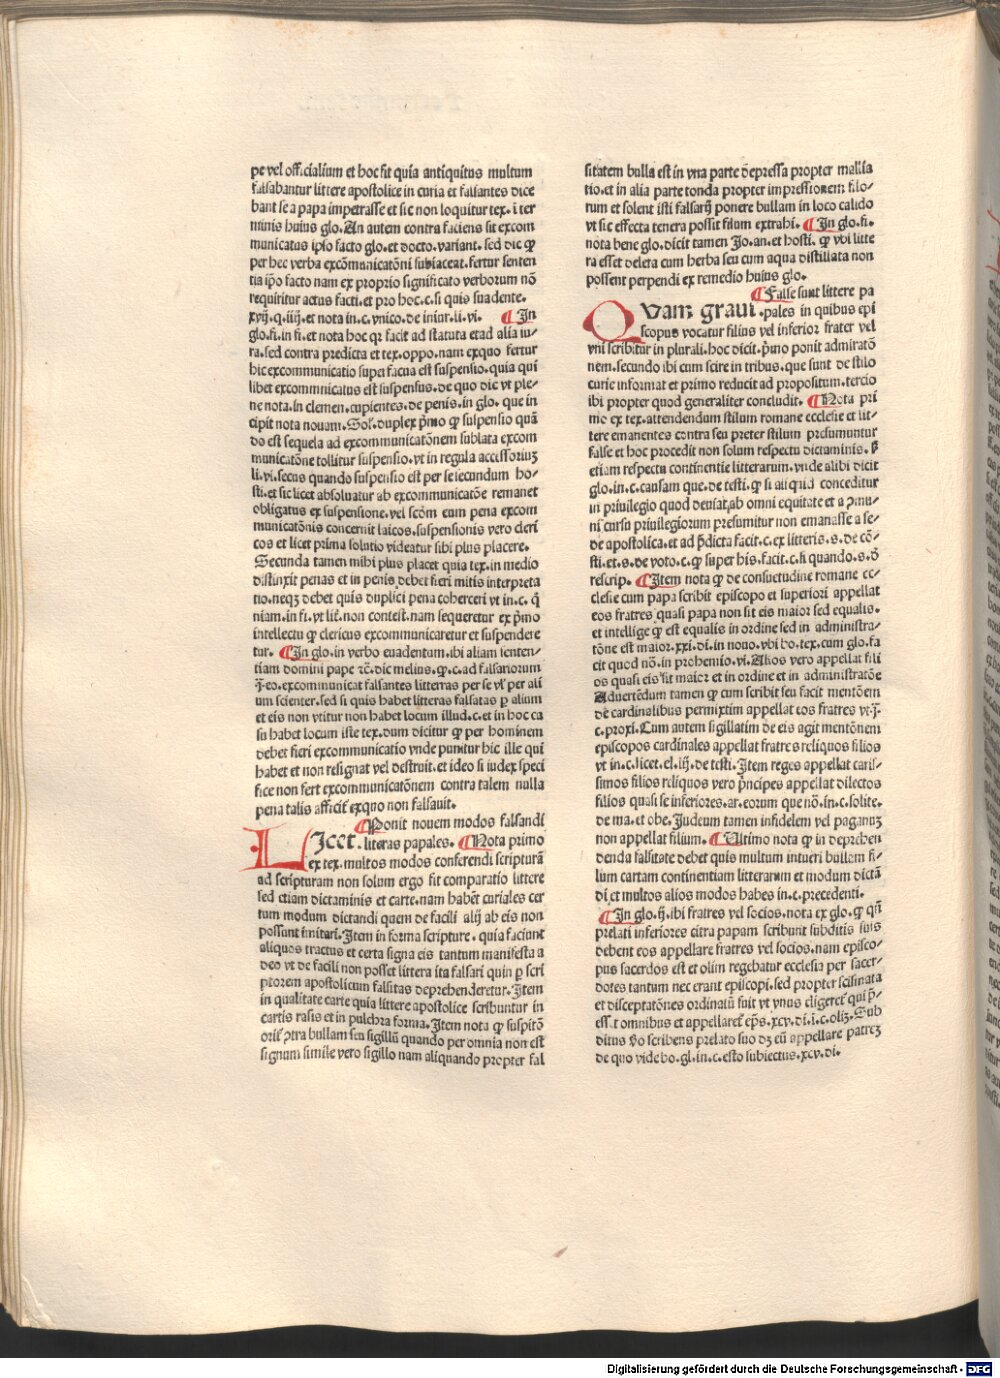 pe vel officialium et hoc fit quia antiquitus multum
falsabantur littere apostolice in curia et falsantes dice
bant se a papa impetrasse et sic non loquitur tex. ī ter
minis huius glo. An autem contra faciens sit excom
municatus ipso facto glo. et docto. variant. sed dic ꝙ
per hec verba excōmunicatōni subiaceat. fertur senten
tia ip̄o facto nam ex proprio significato verborum nō
requiritur actus facti. et pro hoc. c. si quis suadente.
xvij. q. iiij. et nota in. c. vnico. de iniur. li. vi. ¶ In
glo. fi. in fi. et nota hoc qꝛ facit ad statuta et ad alia iu-
ra. sed contra predicta et tex. oppo. nam exquo fertur
hic excommunicatio superfacua est suspensio. quia qui
libet excommnicatus est suspensus. de quo dic vt ple-
ne nota. in clemen. cupientes. de penis. in glo. que in
cipit nota nouam. Sol. duplex p̄mo ꝙ suspensio quā
do est sequela ad excommunicatōnem sublata excom
municatōne tollitur suspensio. vt in regula accessoriuꝫ
li. vi. secus quando suspensio est per se secundum ho-
sti. et sic licet absoluatur ab excommunicatōe remanet
obligatus ex suspensione. vel scōm eum pena excom
municatōnis concernit laicos. suspensionis vero cleri
cos et licet prima solutio videatur sibi plus placere.
Secunda tamen mihi plus placet quia tex. in medio
distinxit penas et in penis debet fieri mitis interpreta
tio. neqꝫ debet quis duplici pena coherceri vt in. c. q̄
niam. in fi. vt lit̄. non contest. nam sequeretur ex p̄mo
intellectu ꝙ clericus excommunicaretur et suspendere
tur. ¶ In glo. in verbo euadentum. ibi aliam senten-
tiam domini pape ⁊c̄. dic melius. ꝙ. c. ad falsariorum
ī. eo. excommunicat falsantes litterras per se vl' per ali
um scienter. sed si quis habet litteras falsatas p alium
et eis non vtitur non habet locum illud. c. et in hoc ca
su habet locum iste tex. dum dicitur ꝙ per hominem
debet fieri excommunicatio vnde punitur hic ille qui
habet et non resignat vel destruit. et ideo si iudex speci
fice non fert excommunicatōnem contra talem nulla
pena talis afficit̄ exquo non falsauit.
¶ Ponit nouem modos falsandi
LIcet. literas papales. ¶ Nota primo
ex tex. multos modos conferendi scripturā
ad scripturam non solum ergo fit comparatio littere
sed etiam dictaminis et carte. nam habēt curiales cer
tum modum dictandi quem de facili alij ab eis non
possunt imitari. Item in forma scripture. quia faciunt
aliquos tractus et certa signa eis tantum manifesta a
deo vt de facili non posset littera ita falsari quin p scri
ptorem apostolicum falsitas deprehenderetur. Item
in qualitate carte quia littere apostolice scribuntur in
cartis rasis et in pulchra forma. Item nota ꝙ suspitō
oris̄ ꝯtra bullam seu sigillū quando per omnia non est
signum simile vero sigillo nam aliquando propter fal
sitatem bulla est in vna parte dēpressa propter mallia
tio. et in alia parte tonda propter impressionem filo-
rum et solent isti falsarij ponere bullam in loco calido
vt sic effecta tenera possit filum extrahi. ¶ In glo. fi.
nota bene glo. dicit tamen Jo. an. et hosti. ꝙ vbi litte
ra esset deleta cum herba seu cum aqua distillata non
possent perpendi ex remedio huius glo.
¶ False sunt littere pa
QVam graui. pales in quibus epi
scopus vocatur filius vel inferior frater vel
vni scribitur in plurali. hoc dicit. p̄mo ponit admiratō
nem. secundo ibi cum scire in tribus. que sunt de stilo
curie informat et primo reducit ad propositum. tercio
ibi propter quod generaliter concludit. ¶ Nota pri
mo ex tex. attendendum stilum romane ecclesie et lit-
tere emanentes contra seu preter stilum presumuntur
false et hoc procedit non solum respectu dictaminis. ꝓ
etiam respectu continentie litterarum. vnde alibi dicit
glo. in. c. causam que. de testi. ꝙ si aliquid conceditur
in priuilegio quod deuiat̄ ab omni equitate et a ꝯmu-
ni cursu priuilegiorum presumitur non emanasse a se-
de apostolica. et ad p̄dicta facit. c. ex litteris. s. de cō-
sti. et. s. de voto. c. ꝙ super his. facit. c. si quando. s. d̄
rescrip. ¶ Item nota ꝙ de consuetudine romane ec-
clesie cum papa scribit episcopo et superiori appellat
eos fratres quasi papa non sit eis maior sed equalis.
et intellige ꝙ est equalis in ordine sed in administra-
tōne est maior. xxi. di. in nouo. vbi bo. tex. cum glo. fa
cit quod nō. in prohemio. vi. Alios vero appellat fili
os quasi eis sit maior et in ordine et in administratōe
Aduertēdum tamen ꝙ cum scribit seu facit mentōem
de cardinalibus permixtim appellat eos fratres vt. ī.
c. proxi. Cum autem sigillatim de eis agit mentōnem
episcopos cardinales appellat fratres reliquos filios
vt in. c. licet. el. iij. de testi. Item reges appellat caris-
simos filios reliquos vero p̄ncipes appellat dilectos
filios quasi se inferiores. ar. eorum que nō. in. c. solite.
de ma. et obe. Judeum tamen infidelem vel paganuꝫ
non appellat filium. ¶ Ultimo nota ꝙ in deprehen
denda falsitate debet quis multum intueri bullam fi-
lum cartam continentiam litterarum et modum dictā
di. et multos alios modos habes in. c. precedenti.
¶ In glo. ij. ibi fratres vel socios. nota ex glo. ꝙ qn̄
prelati inferiores citra papam scribunt subditis suis
debent eos appellare fratres vel socios. nam episco-
pus sacerdos est et olim regebatur ecclesia per sacer-
dotes tantum nec erant episcopi. sed propter scismata
et disceptatōnes ordinatū fuit vt vnus eligeret̄ qui p̄-
ess̄. t omnibus et appellaret̄ ep̄s. xcv. di. i. c. oliꝫ. Sub
ditus v̄o scribens prelato suo dꝫ eū appellare patreꝫ
de quo vide bo. gl. in. c. esto subiectus. xcv. di.
Digitalisierung gefördert durch die Deutsche Forschungsgemeinschaft - DFG